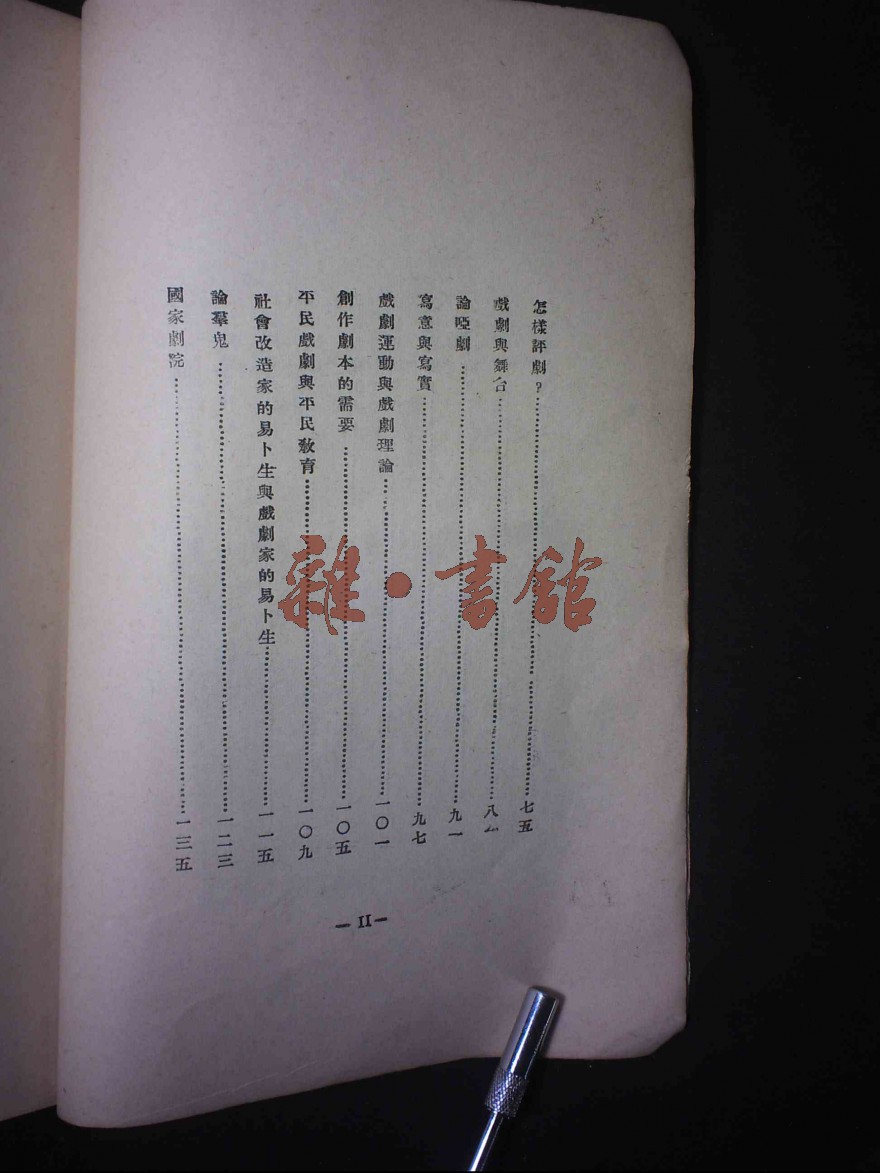 怎樣評劇？……七五
戲劇與舞台……八
論啞劇……九一
寫意與寫實……九七
戲劇運動與戲劇理論……一〇一
創作劇本的需要……一〇五
平民戲劇與平民教育……一〇九
社會改造家的易卜生與戲劇家的易卜生……一一五
論羣鬼……一二三
國家劇院……一三五
— II —
雜·書館